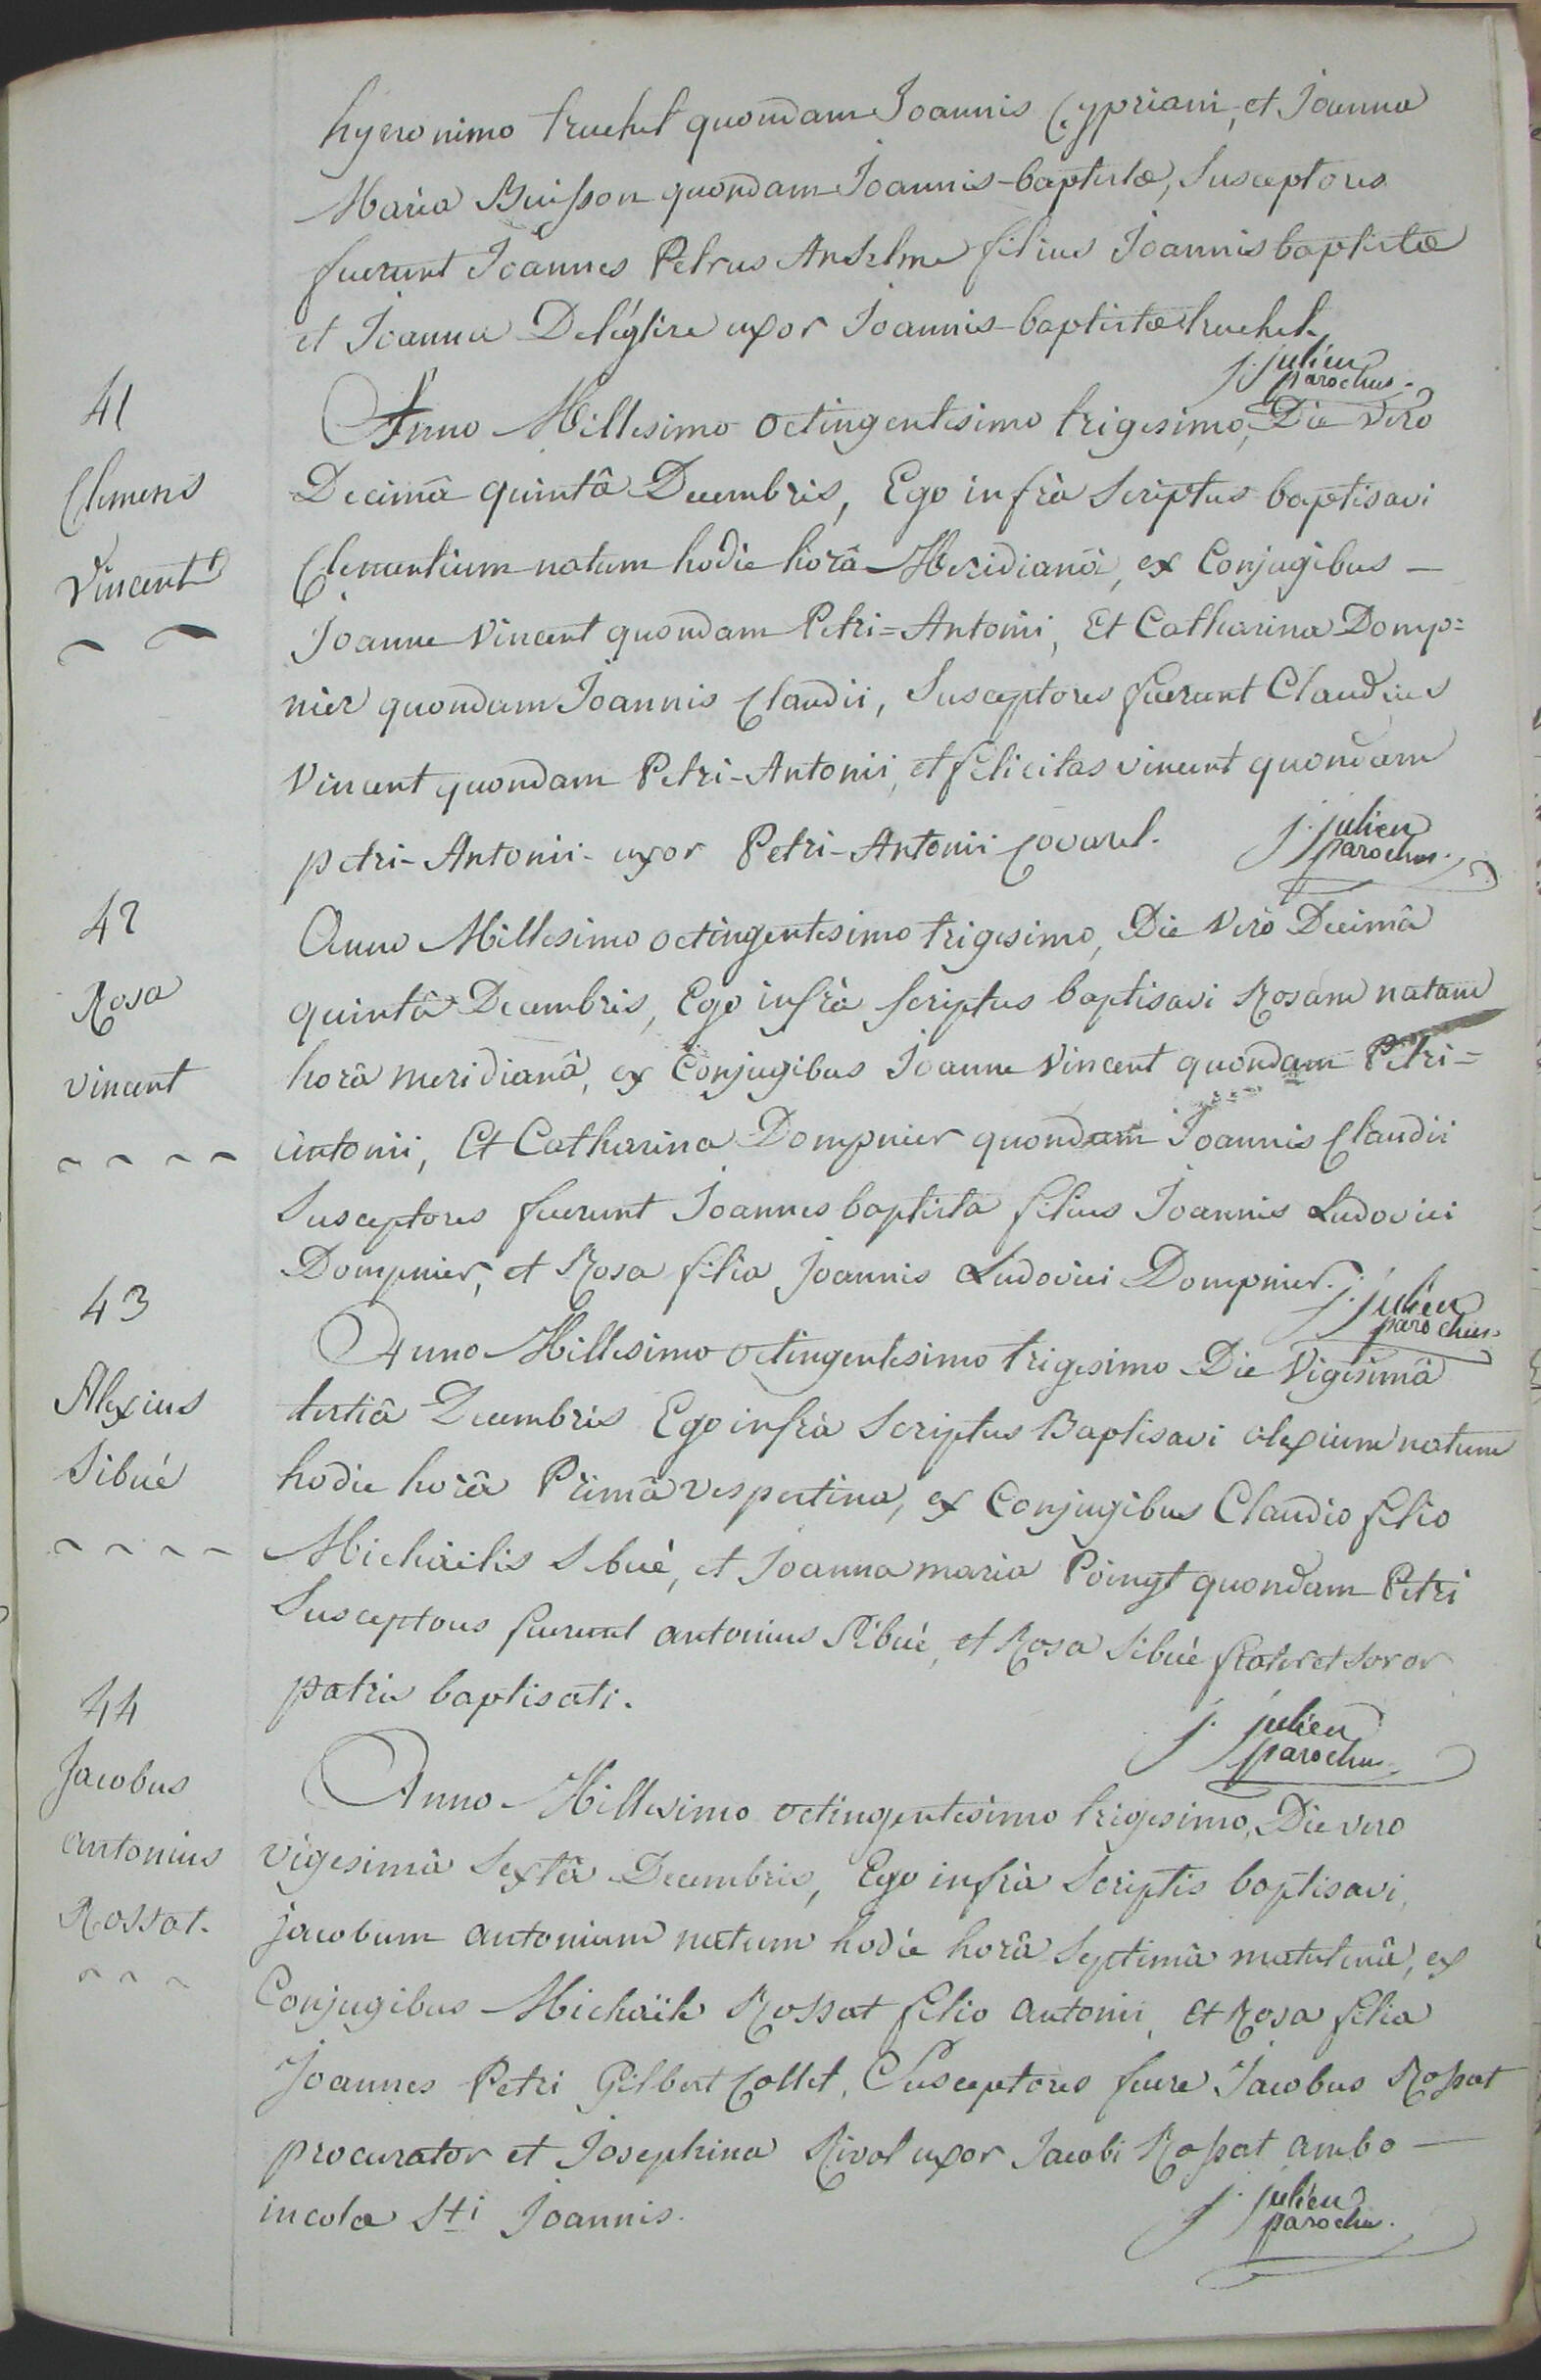 hyeronimo truchet quondam Joannis Cypriani, et Joanna
Maria Buisson quondam Joannis-baptistæ, Susceptores
fuerunt Joannes Petrus Anselme filius Joannis baptistæ
et Joanna Deléglise uxor Joannis-baptistæ truchet.
j. julien
parochus.
41
Clemens
Vincent
Anno Millesimo octingentesimo trigesimo, Die vero
Decimâ quintâ Decembris, Ego infrà Scriptus baptisavi
Clementium natum hodie horâ Meridianâ, ex Conjugibus —
Joanne Vincent quondam Petri=Antonii, Et Catharina Domp=
nier quondam Joannis Claudii, Susceptores fuerunt Claudius
Vincent quondam Petri-Antonii, et felicitas vincent quondam
petri-Antonii- uxor Petri-Antonii Covarel.
j. julien
parochus.
42
Rosa
vincent
Anno Millesimo octingentesimo trigesimo, Die Verò Decimâ
quintâ Decembris, Ego infrà scriptus baptisavi Rosam natam
horâ meridianâ, ex Conjugibus Joanne Vincent quondam Petri=
antonii, Et Catharina Dompnier quondam Joannis Claudii
Susceptores fuerunt Joannes baptista filius Joannis Ludovici
Dompnier, et Rosa filia Joannis Ludovici Dompnier.
j. julien
parochus.
43
Alexius
Sibué
Anno Millesimo octingentesimo trigesimo Die Vigesimâ
tertiâ Decembris Ego infrà Scriptus Baptisavi alexium natum
hodie horâ Primâ vespertina, ex Conjugibus Claudio filio
Michäelis Sibué, et Joanna maria Poingt quondam Petri
Susceptores fuerunt antonius Sibué, et Rosa Sibué frater et soror
patris baptisati.
j. julien
parochus
44
Jacobus
antonius
Rossat.
Anno Millesimo octingentesimo trigesimo, Die vero
vigesimâ Sextâ Decembris, Ego infrà Scriptis baptisavi,
jacobum antonium natum hodie horâ septimâ matutinâ, ex
Conjugibus Michäele Rossat filio antonii, et Rosa filia
Joannes Petri Gilbert Collet, Susceptores fuere Jacobus Rossat
procurator et Josephina Rivol uxor Jacobi Rossat ambo —
incolæ Sti Joannis.
j. julien
parochus.